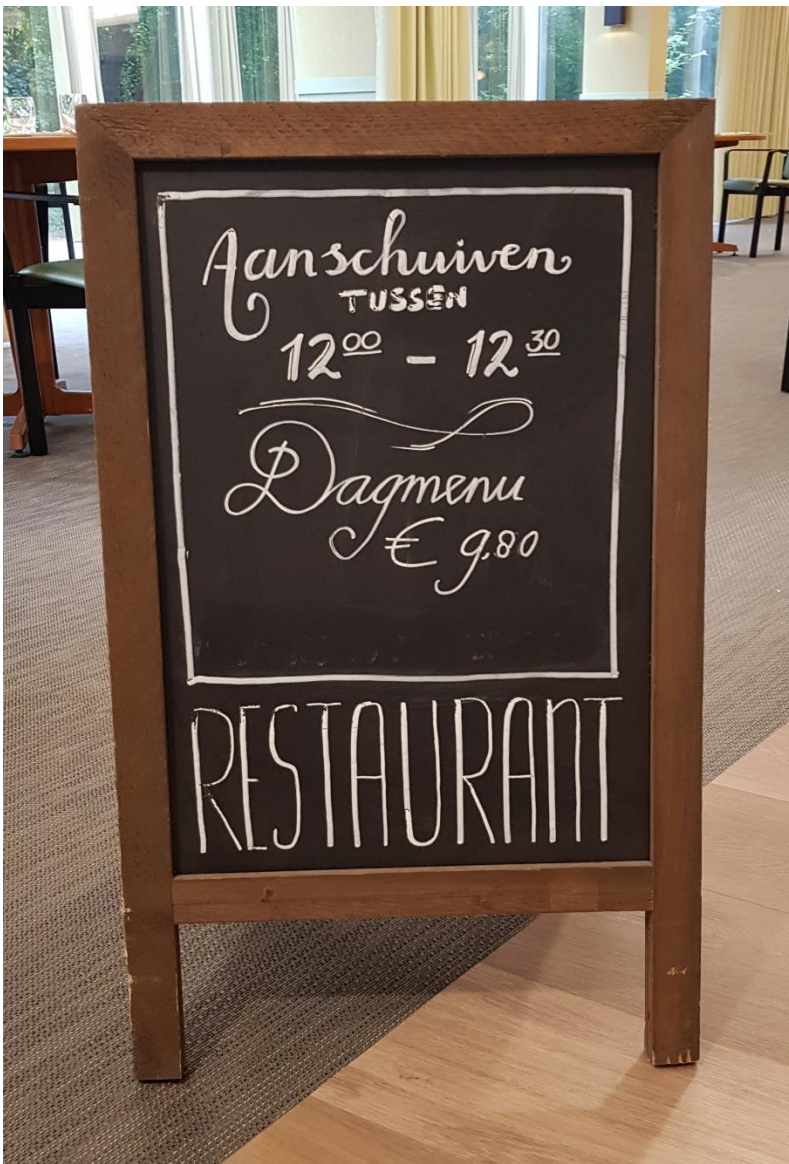 Aanschuiven
TUSSEN
12⁰⁰ - 12³⁰
Dagmenu
€ 9.80
RESTAURANT